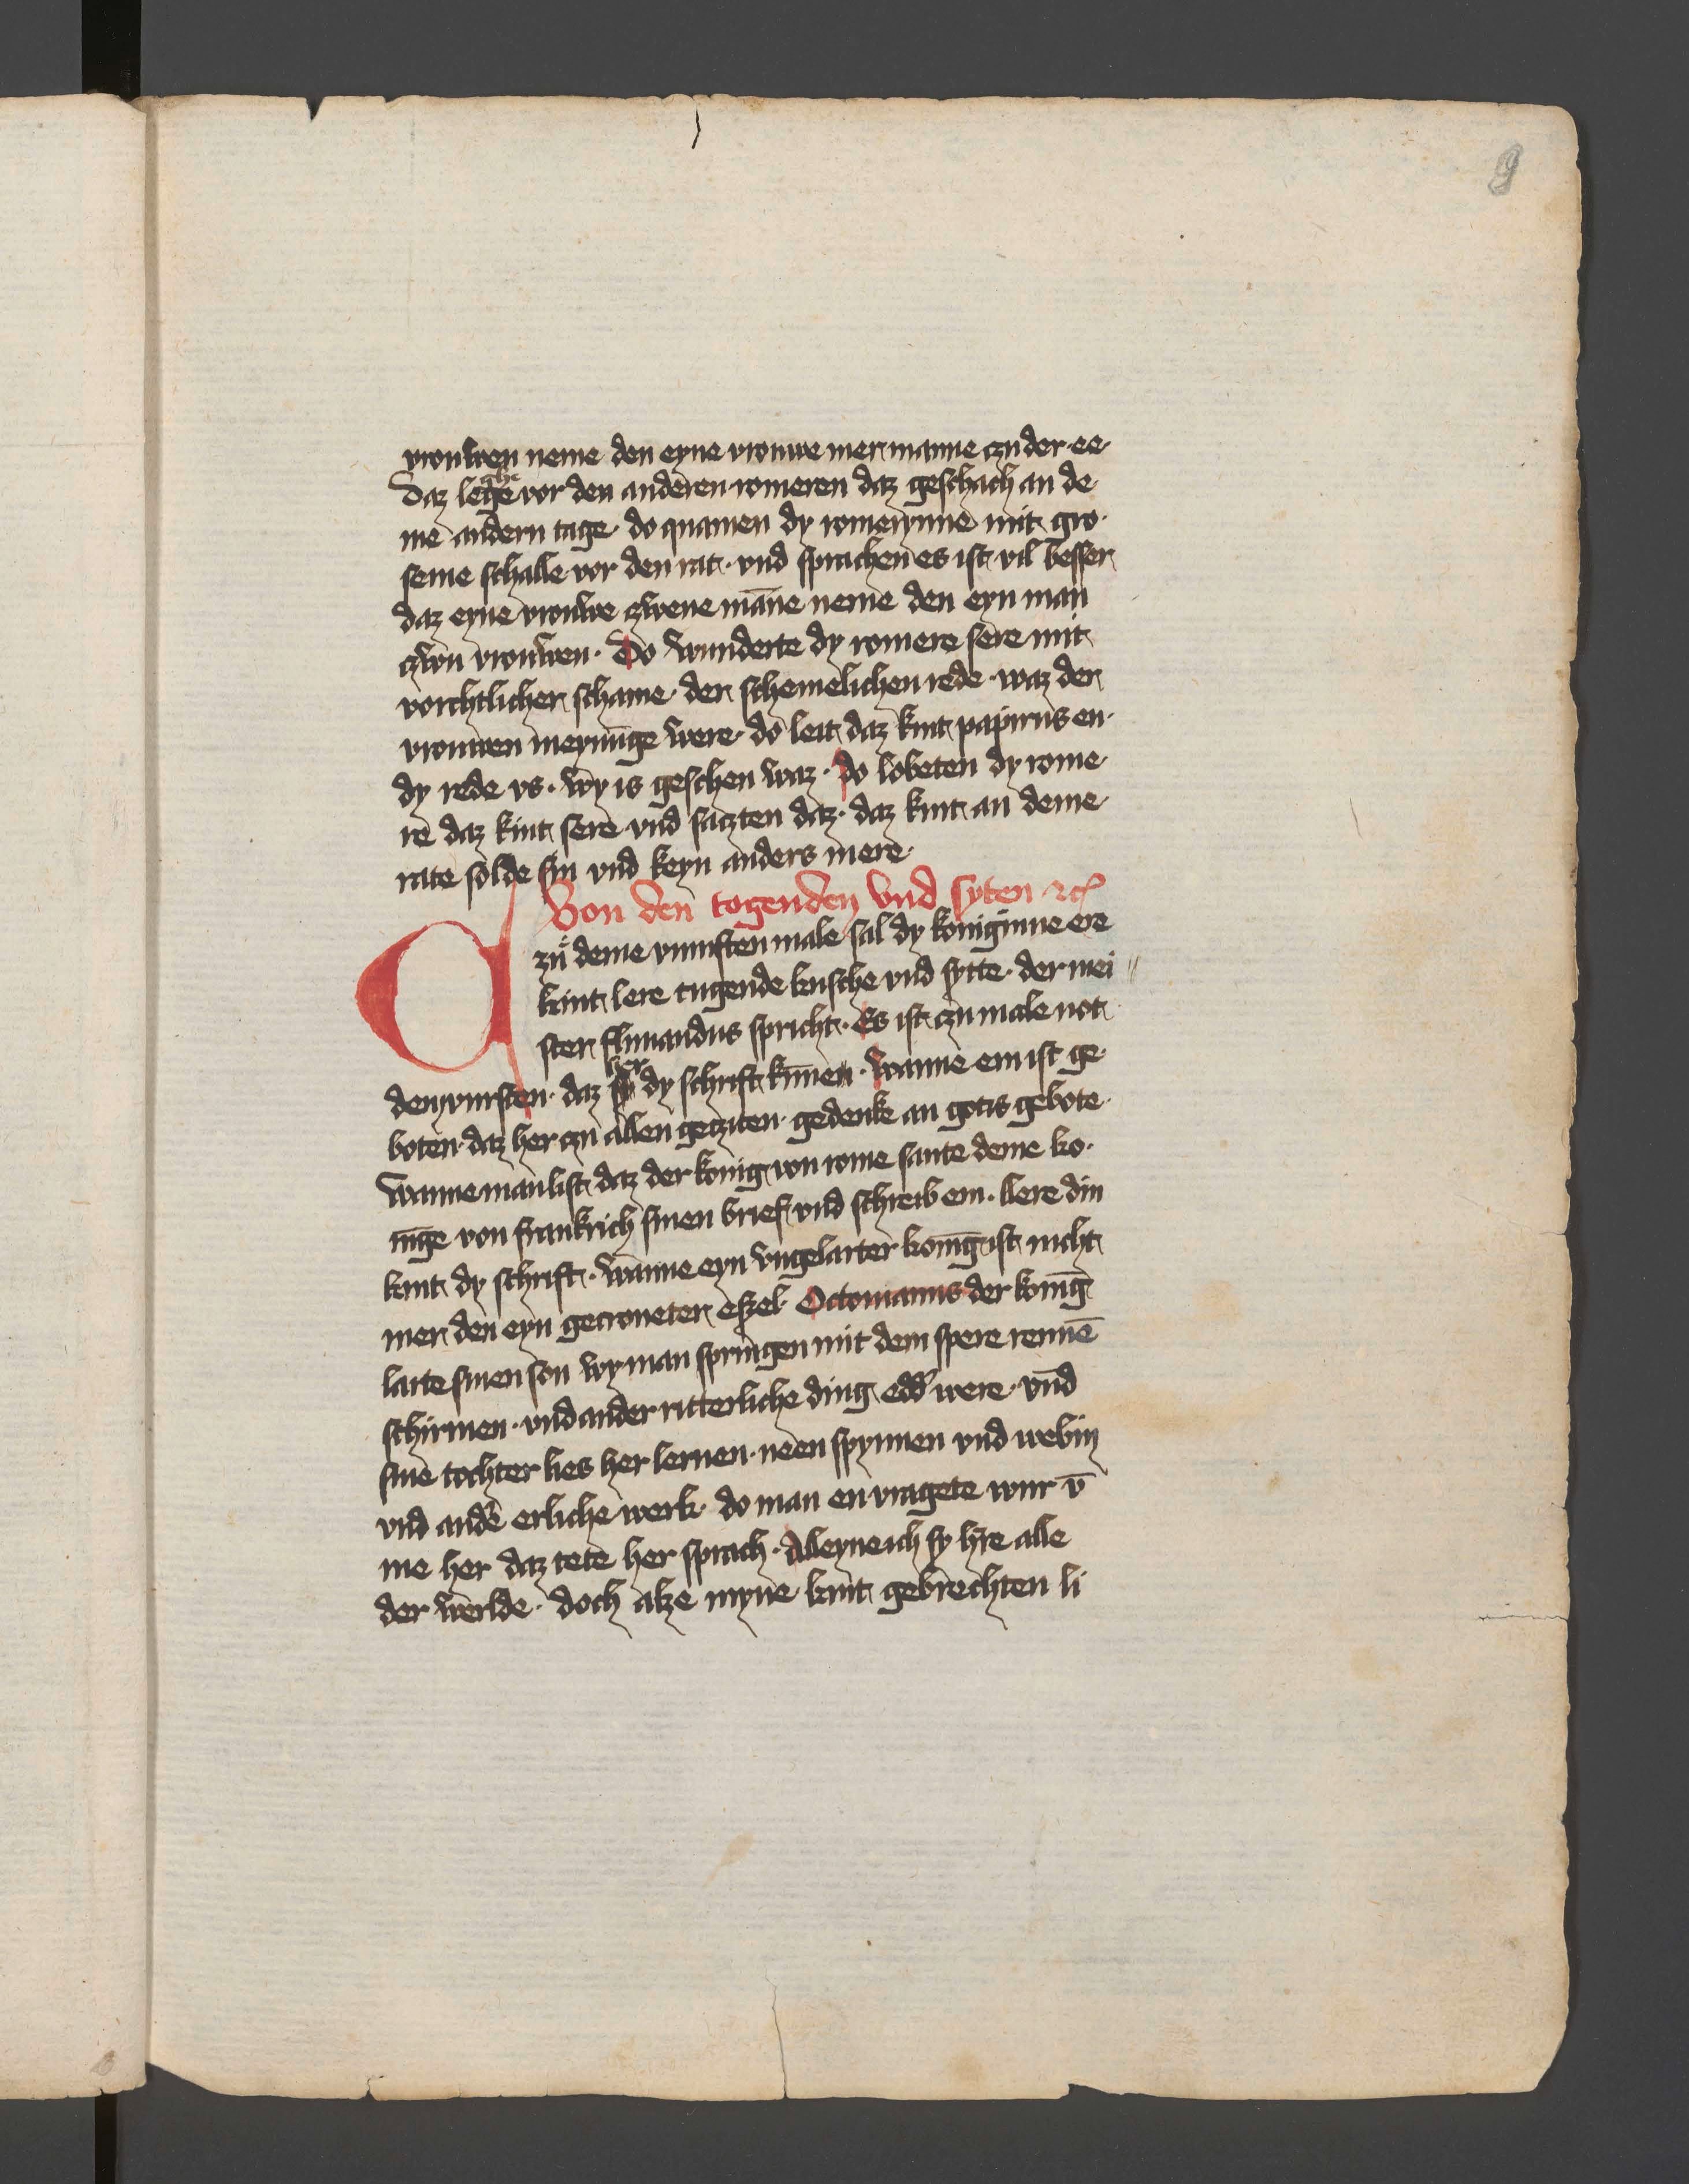 9
vrouwen neme den eyne vrouwe mer manne czu der ee
Daz lege ghe vor den anderen romeren daz geschach an de
me andern tage do quamen dy romerynne mit gro
seme schalle vor den rat · vnd sprachen es ist vil besser
daz eyne vrouwe czwene māne neme den eyn man
czwu vrouwen · Do wunderte dy romere sere mit
vorchtlicher schame der schemelichen rede · waz der
vrouwen meynūge were · do leit daz kint papirus en
dy rede vs · wy is geschen waz · do lobeten dy rome
re daz kint sere vnd saczten daz · daz kint an deme
rate solde sin vnd keyn anders mere
Von den togenden vnd syten ⁊c̄
Czů deme vumften male sal dy koniginne ere
kint lere tugende kusche vnd sytte · der mei
ster flimandus spricht · Es ist czu male not
den vursten · daz her dy schrift kūnen · wanne em ist ge
boten · daz her czu allen gecziten gedenke an gotis gebote
wanne man list daz der konig von rome sante deme ko
nīge von frankrich sinen brief vnd schreib em · llere din
kint dy schrift · wanne eyn vngelarter konīg ist nicht
mer den eyn gecroneter eszel · Octouianus der konīg
larte sinen son wy man springen mit dem spere rennē
schirmen · vnd ander ritterliche ding edd' were · vnd
sine tochter lies her lernen · neen spynnen vnd webin
vnd andē erliche werk · do man en vragete wur v̄
me her daz tete her sprach · Alleyne ich sy hre alle
der werlde · doch alze myne kint gebrechten li